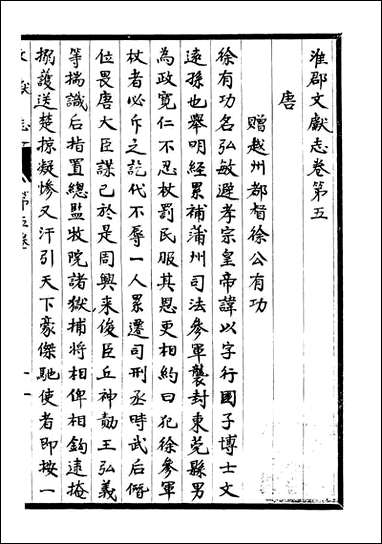 淮郡文獻志卷第五
唐
贈越州都督徐公有功
徐有功名弘敏避孝宗皇帝諱以字行國子博士文
遠孫也舉明經累補蒲州司法參軍襲封東莞縣男
為政寬仁不忍杖罰民服其恩更相約曰犯徐參軍
杖者必斥之訖代不辱一人累遷司刑丞時武后僭
位畏唐大臣謀己於是周興來俊臣丘神勣王弘義
等揣識后指置總監牧院諸獄捕將相俾相鈎逮掩
搦護送楚掠凝慘又汙引天下豪傑馳使者即按一